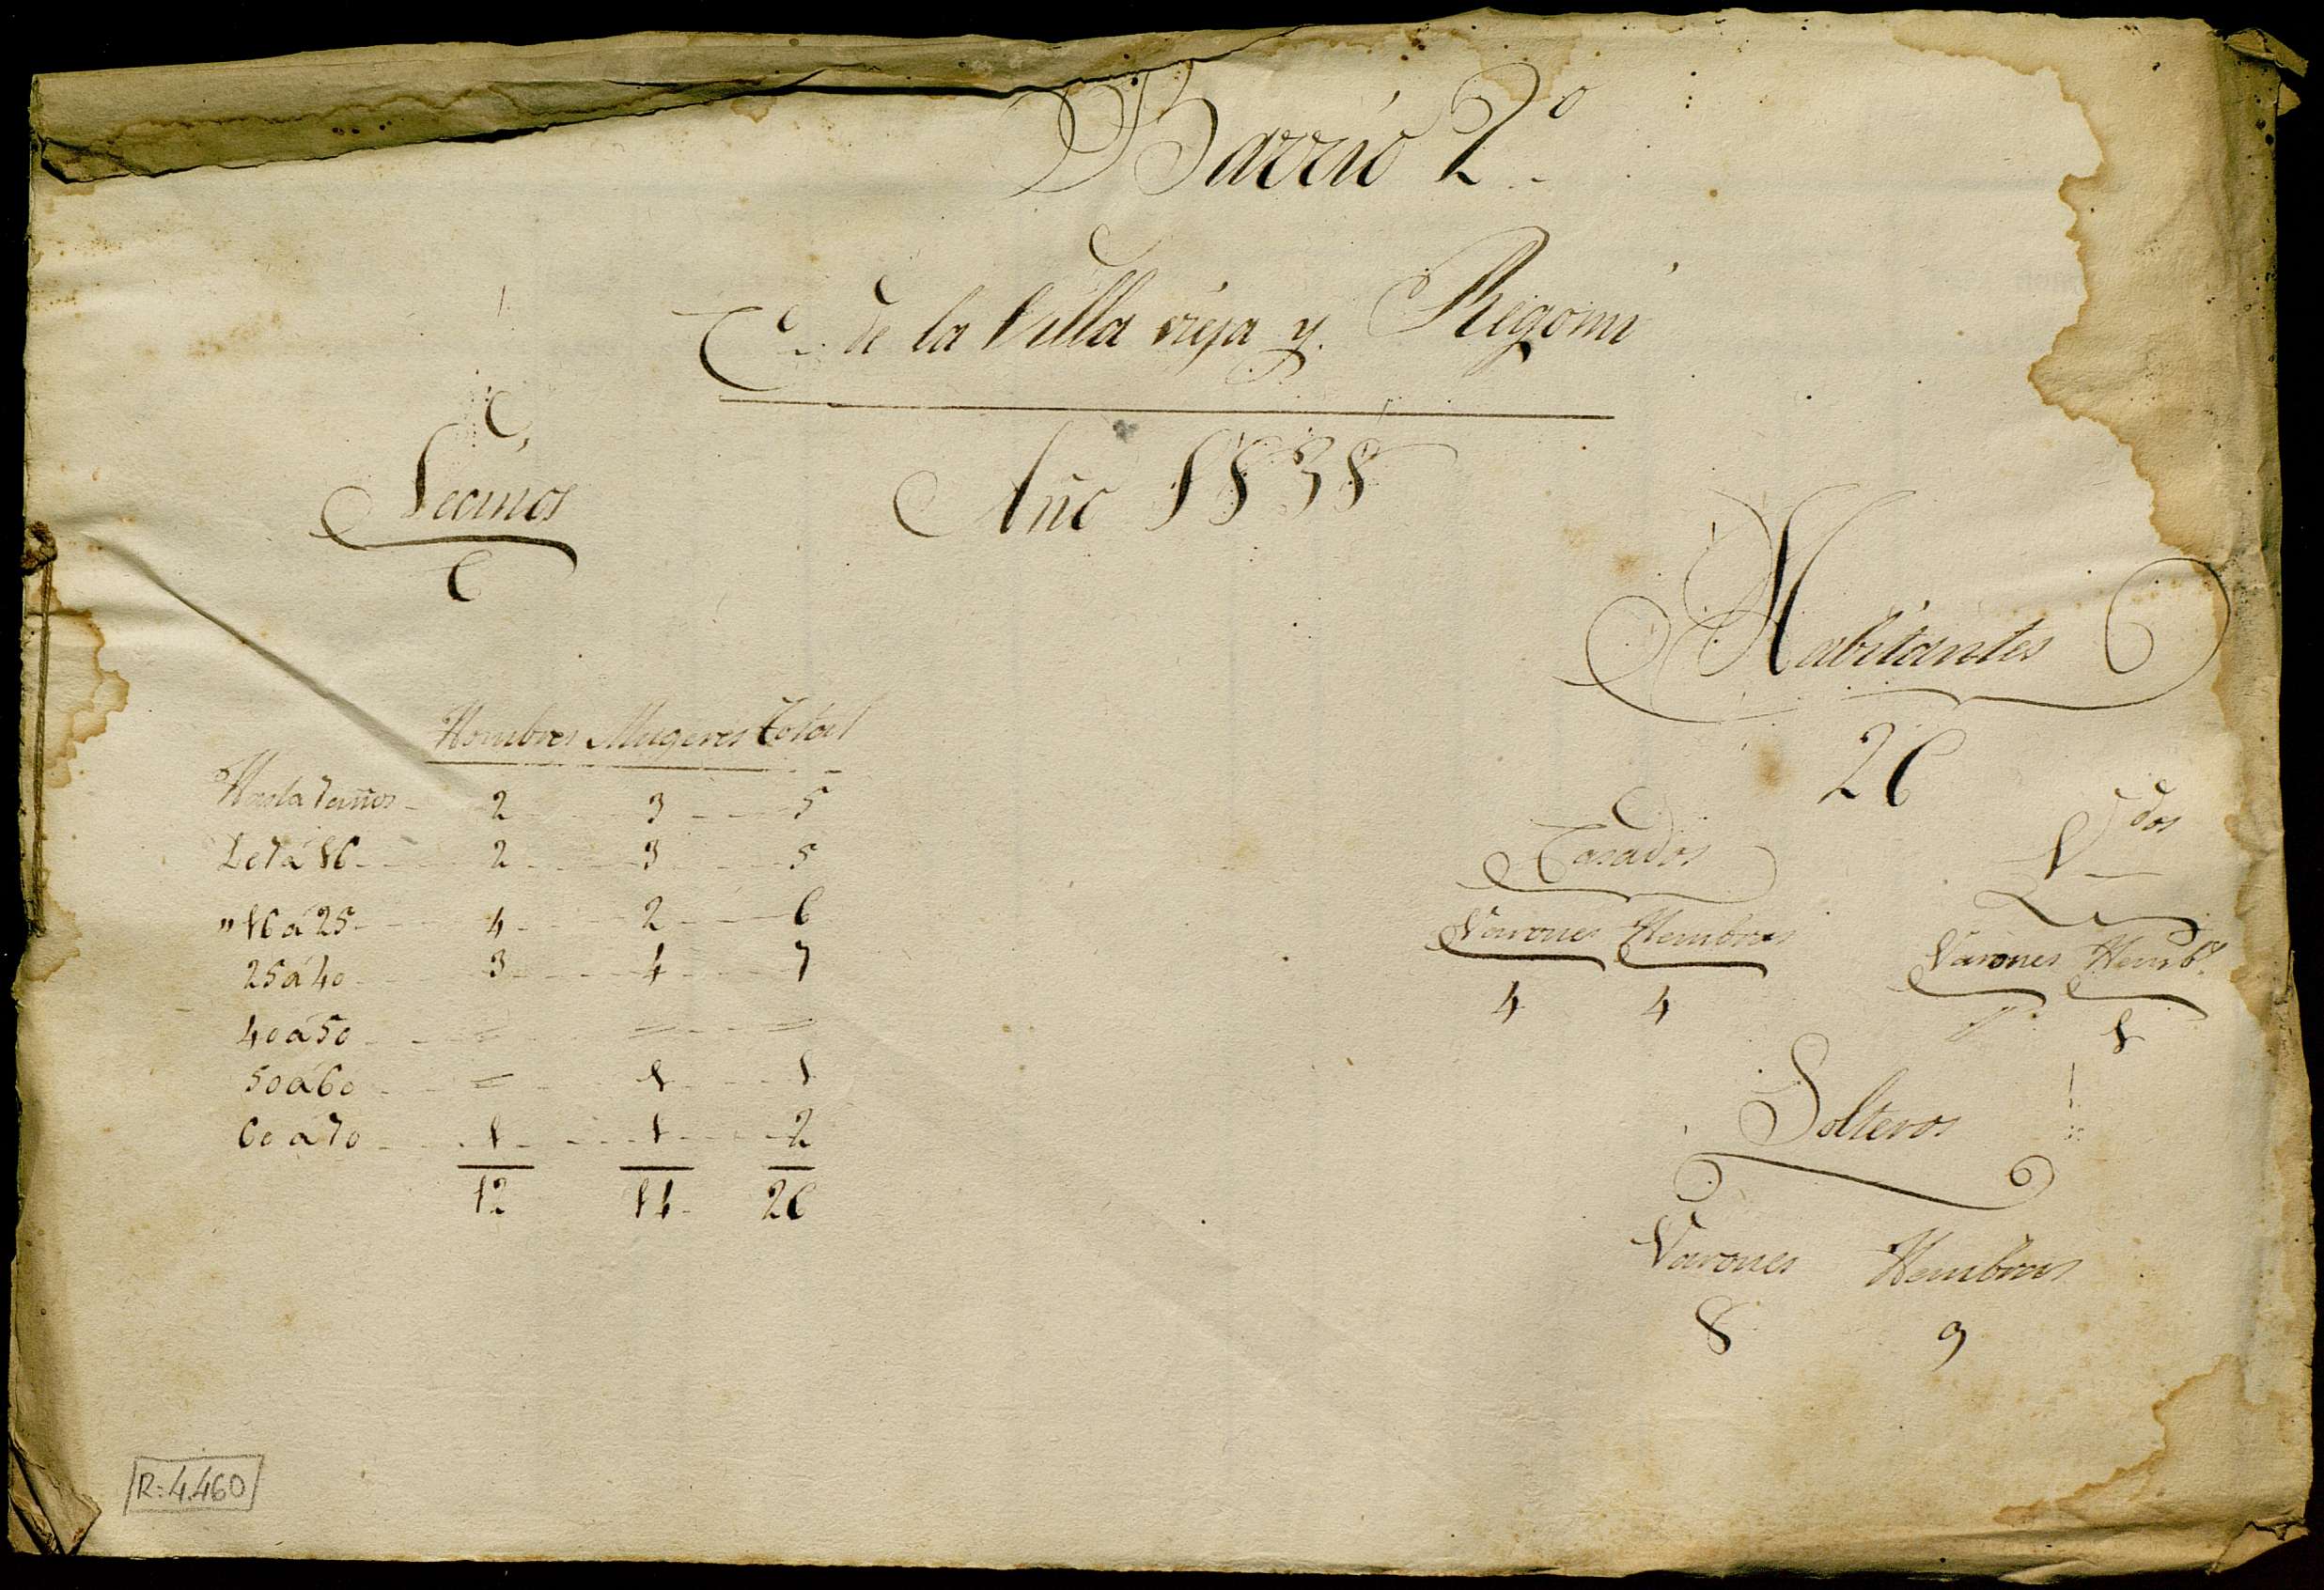 Barrio 2º
C.e de la Villa vieja y Regomi
Año 1838
Vecinos
6
Habitantes
26
Hombres Mugeres Total
Hasta 7 años 2 3 5
De 7 a 16 2 3 5
" 16 a 25 4 2 6
25 a 40 3 4 7
40 a 50 = = =
50 a 60 = 1 1
60 a 70 1 1 2
12 14 26
Casados
Varones Hembras
4 4
V.dos
Varones Hemb.s
" 1
Solteros
Varones Hembras
8 9
R=4.460